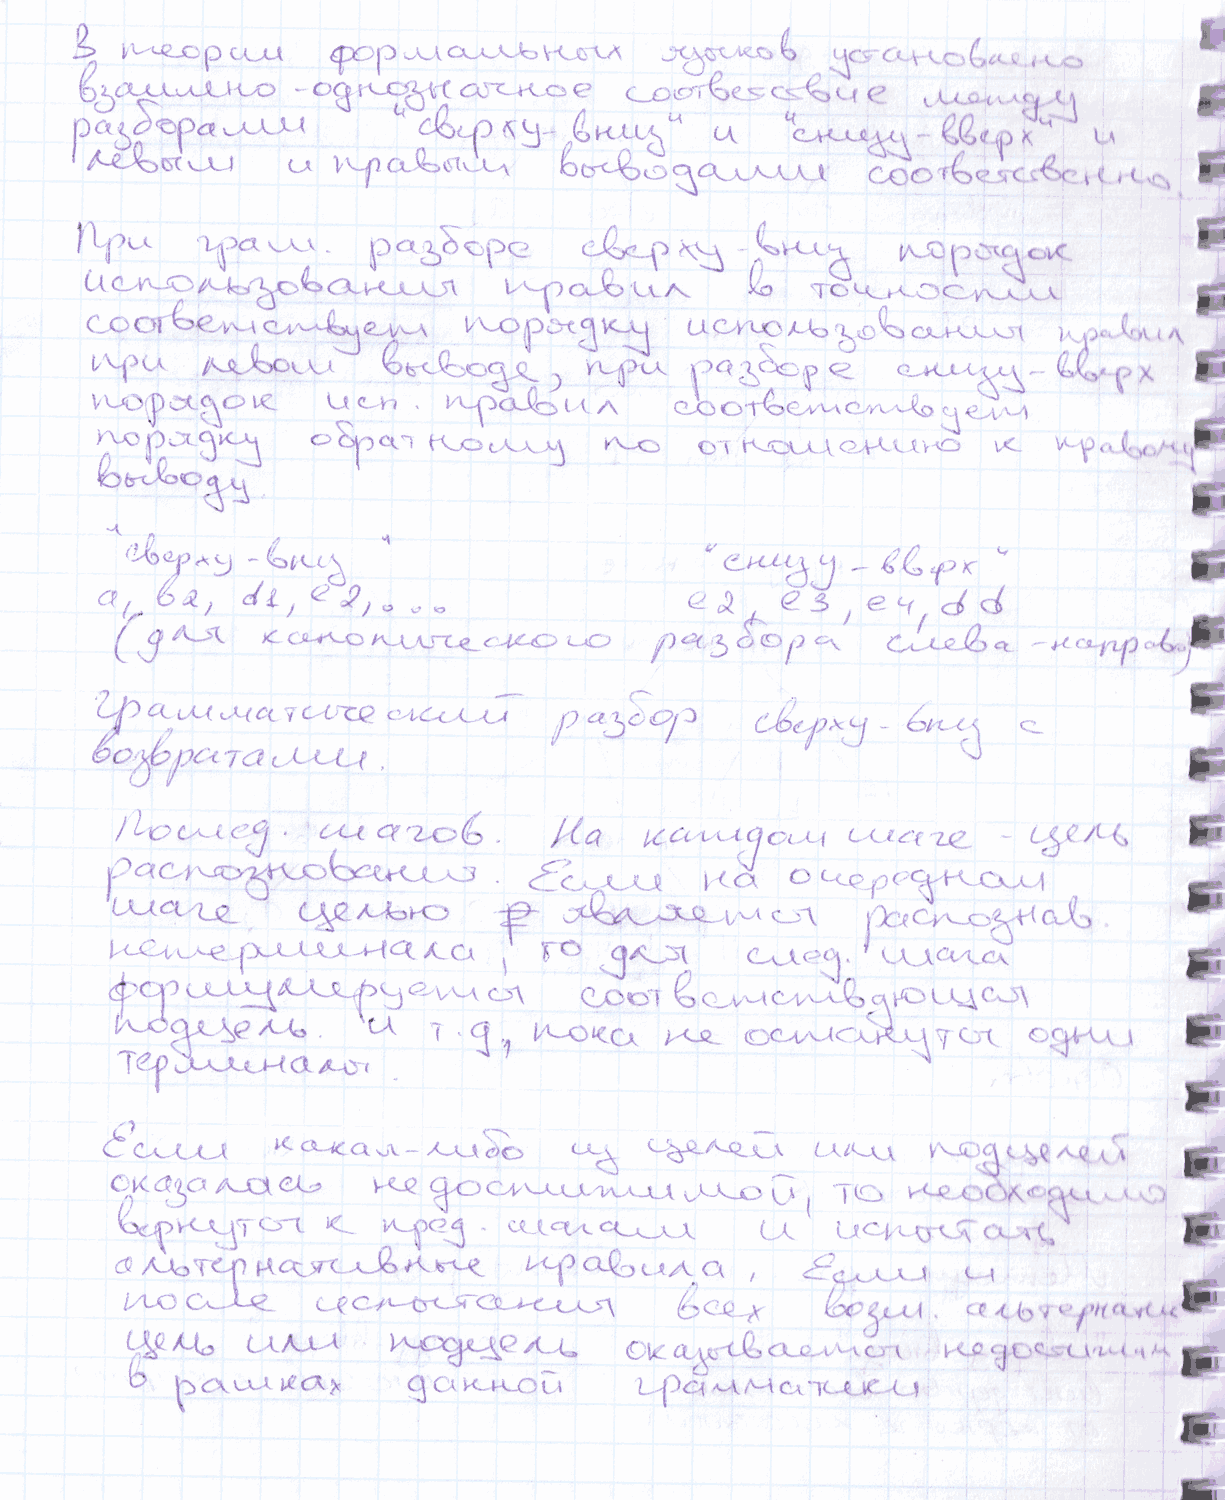 В теории формальных языков установлено
взаимно-однозначное соответствие между
разборами "сверху-вниз" и "снизу-вверх" и
левым и правым выводами соответственно.
При грам. разборе сверху-вниз порядок
использования правил в точности
соответствует порядку использования правил
при левом выводе, при разборе снизу-вверх
порядок исп. правил соответствует
порядку обратному по отношению к правому
выводу.
"сверху-вниз" "снизу-вверх"
a, b2, d1, e2, ... e2, e3, e4, d d
(для канонического разбора слева-направо)
Грамматический разбор сверху-вниз с
возвратами.
Послед. шагов. На каждом шаге - цель
распознования. Если на очередном
шаге целью является распознав.
нетерминала, то для след. шага
формулируется соответствующая
подцель. И т.д, пока не останутся одни
терминалы.
Если какая-либо из целей или подцелей
оказалась недостижимой, то необходимо
вернуться к пред. шагам и испытать
альтернативные правила, Если и
после испытания всех возм. альтернатив
цель или подцель оказывается недостижим
в рамках данной грамматики